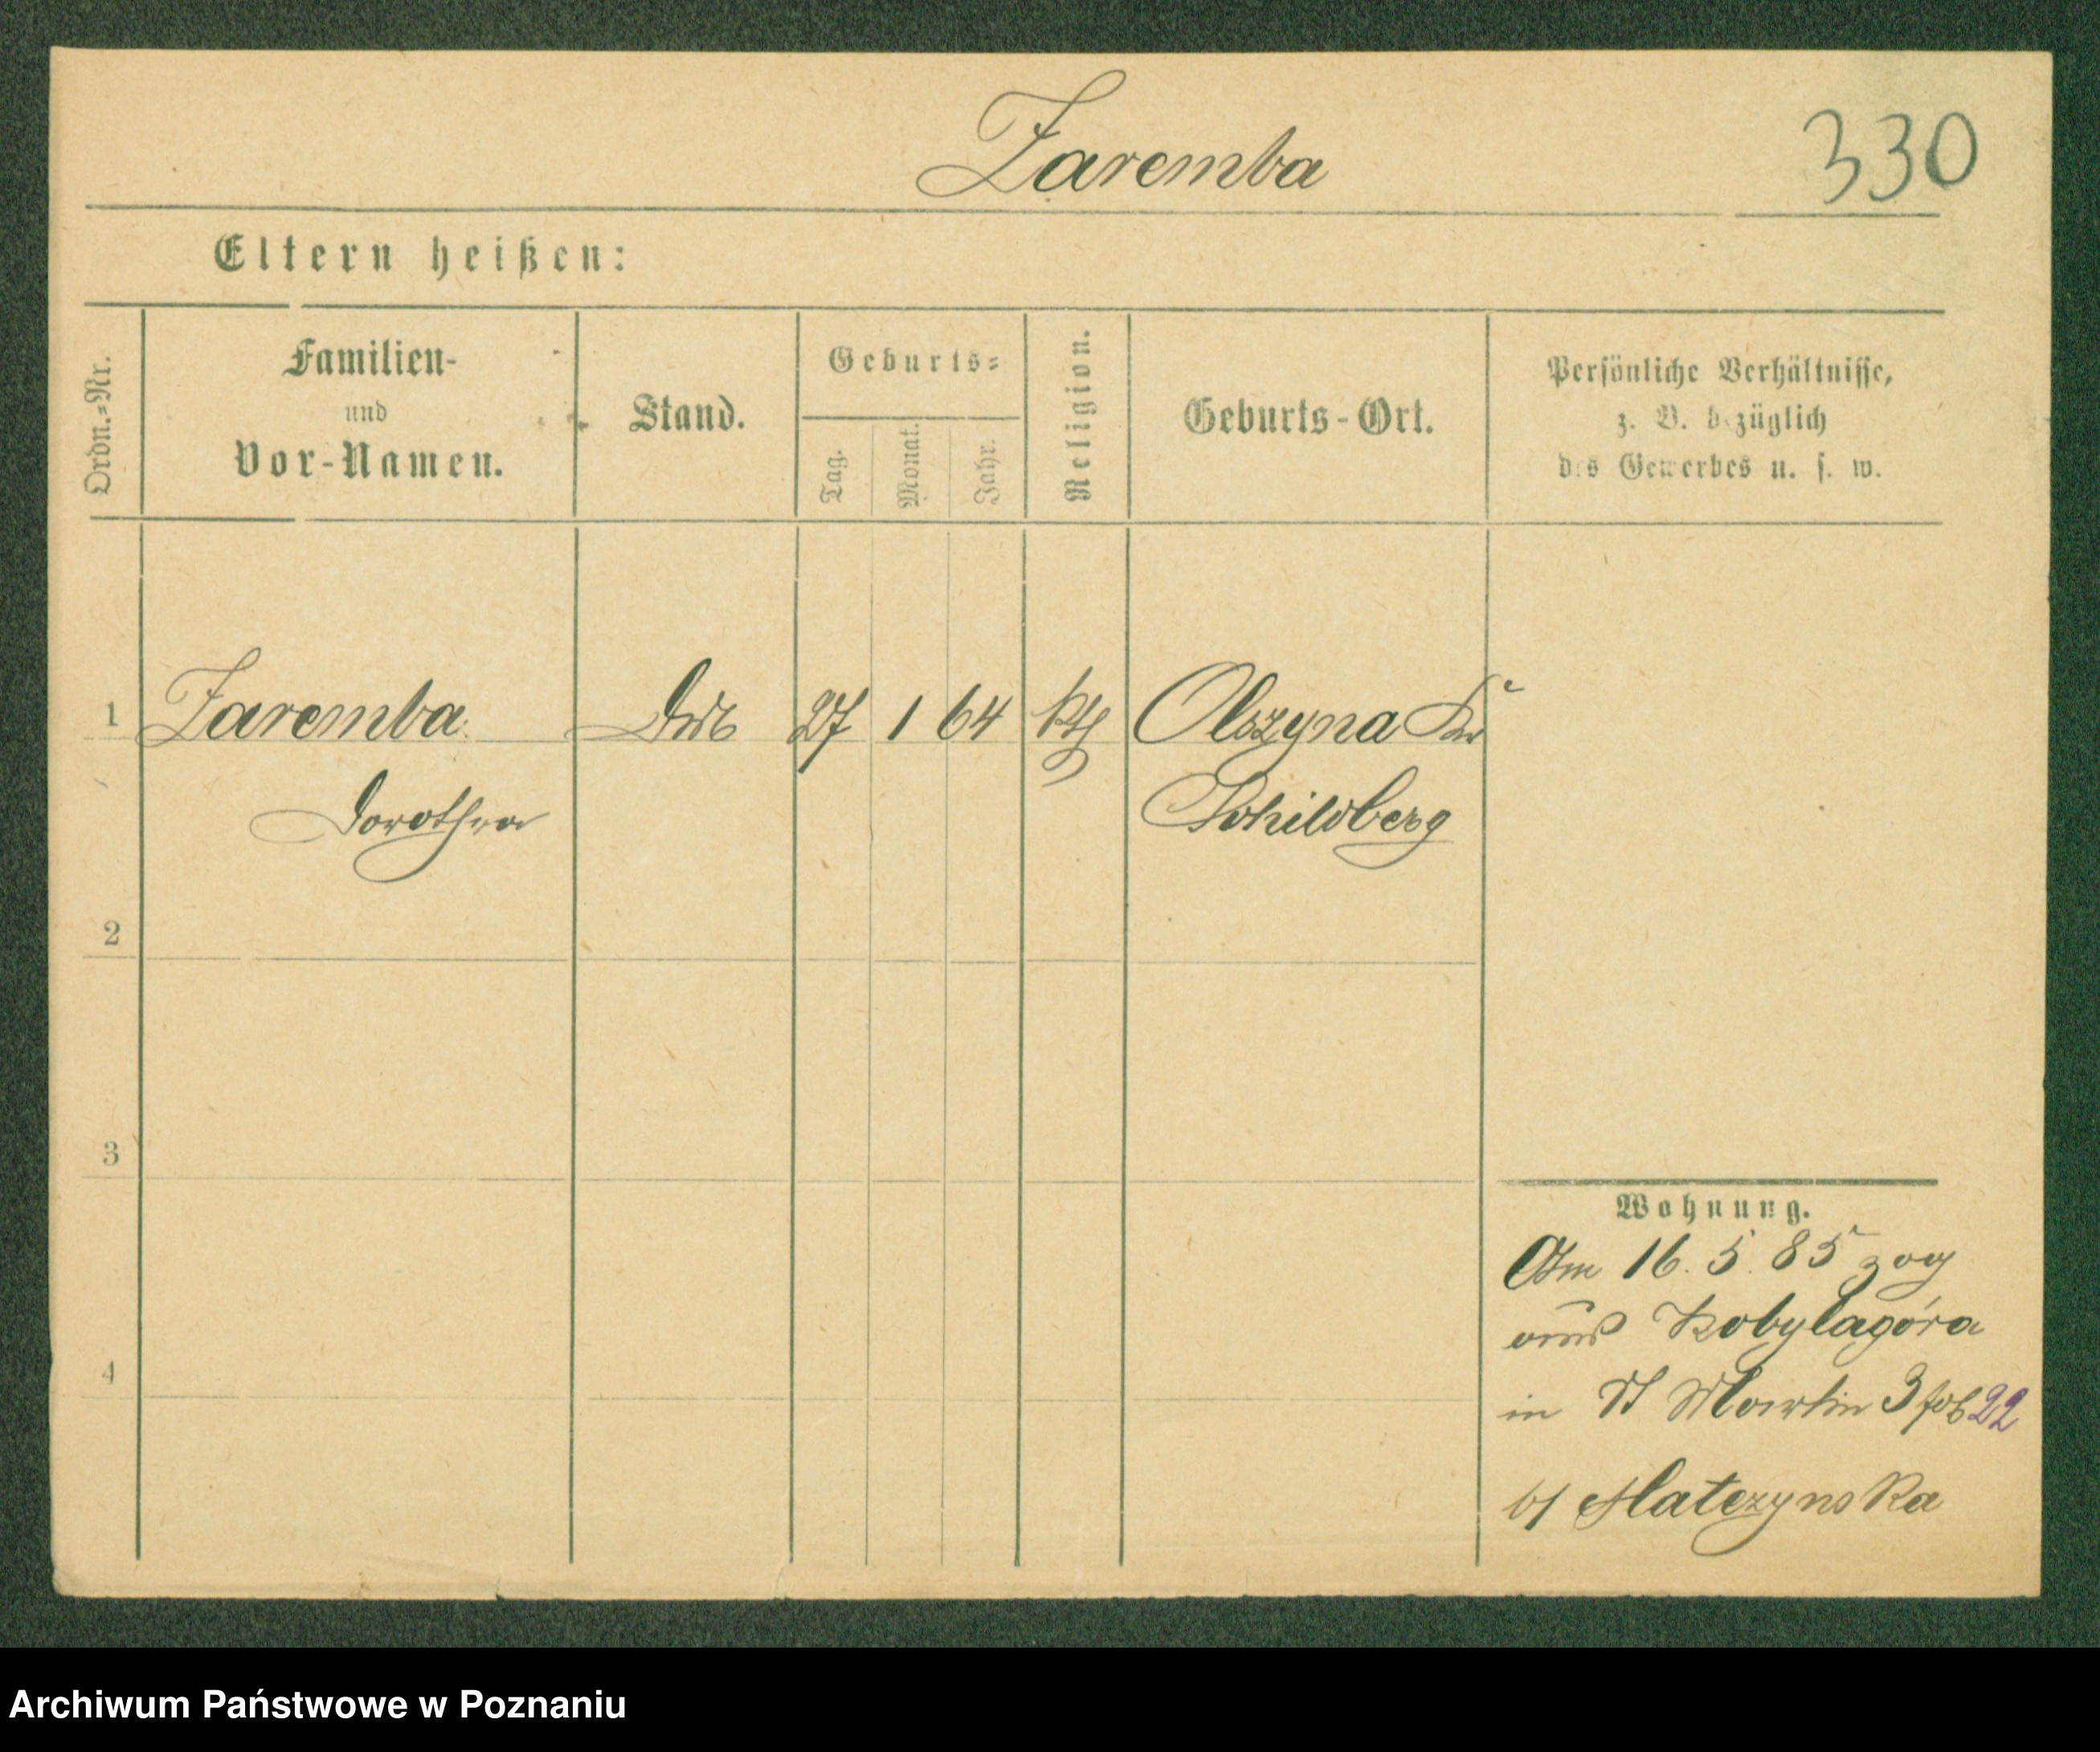 Zaremba
330
Eltern heißen:
Ordn.=Nr.
Familien-
und
Vor-Namen.
Stand.
Geburts=
Tag.
Monat.
Jahr.
Religion.
Geburts-Ort.
Persönliche Verhältnisse,
z. B. bezüglich
des Gewerbes u. s. w.
1 Zaremba 27 1 64 kth Olszyna Kr
Dorothea Schildberg
2
3
4
Wohnung.
Am 16. 5. 85 zog
aus Kobylagóra
in St Martin 3 22
b/
Archiwum Państwowe w Poznaniu